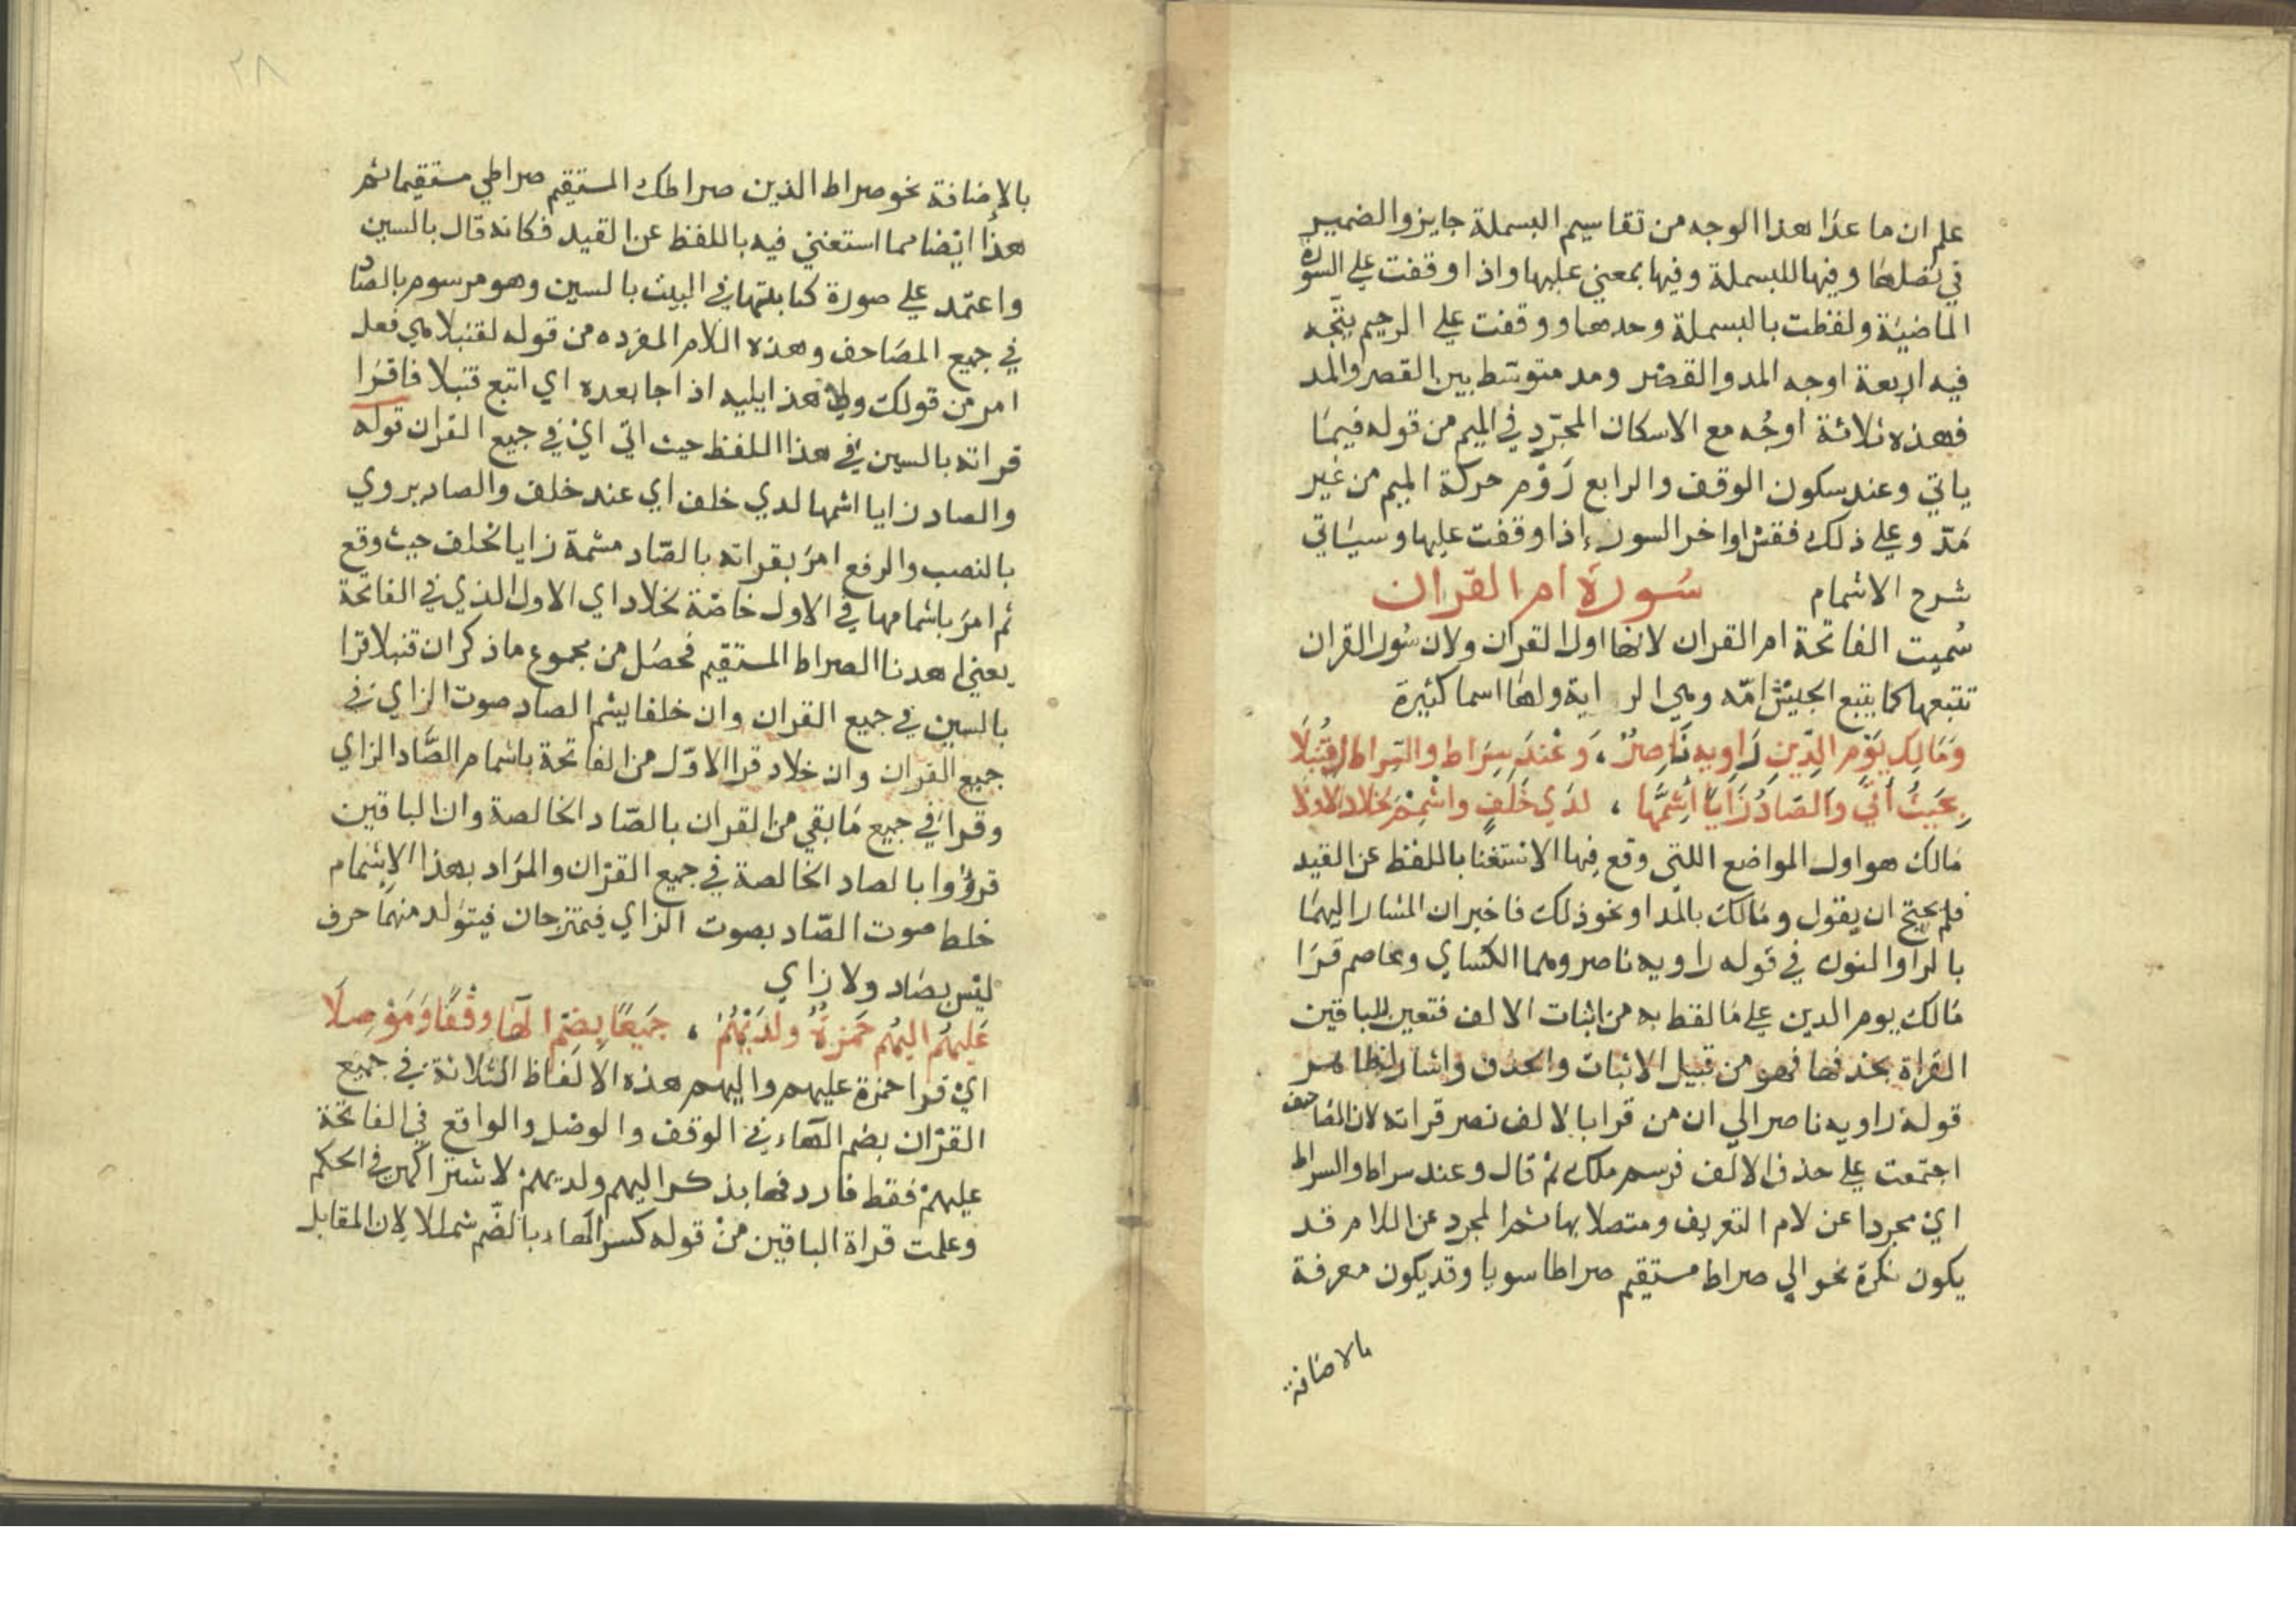 علم ان ما عدا هذا الوجه من تقاسيم البسملة جايز والضمير
في تصلها وفيها للبسملة وفيها بمعني عليها واذا وقفت علي السورة
الماضية ولفظت بالبسملة وحدها ووقفت علي الرحيم يتّجه
فيه اربعة اوجه المد والقصر ومد متوسّط بين القصر والمد
فهذه ثلاثة اوجُه مع الاسكان المجرّد في الميم من قوله فيمَا
ياتي وعند سكون الوقف والرابع رَوْم حركة الميم من غير
مَدّ وعلي ذلك فقس اواخر السور اذا وقفت عليها وسيَاتي
شرح الاشمام سُورة ام القران
سُميت الفاتحة ام القران لانها اول القران ولان سُور القران
تتبعها كما يتبع الجيش امّه وهي الراية ولها اسما كثيرة
وَمَالِكِ يَوْمِ الدِّينِ رَاوِيهِ نَاصِرٌ ، وَعْندَ سِرَاط والسِّراط لِ قُنْبُلَا
بِحَيْثُ أَتَي وَالصّادُ زَايًا أَشِمَّهَا ، لدَي خَلَفٍ واشْمِمْ لخلاد الاولا
مَالك هو اول المواضع اللتي وقع فيها الاستغنا باللفظ عن القيد
فلم يحتج ان يقول ومَالك بالمد او نحو ذلك فاخبر ان المشار اليهمَا
بالرا والنون في قوله راويه ناصر وهما الكساي وعاصم قرَا
مَالك يوم الدين علي مَا لفظ به من اثبات الالف فتعين للباقين
القراة بحذفها فهو من قبيل الاثبات والحذف واشار بظاهر
قوله راويه ناصر الي ان من قرا بالالف نصر قراته لان المصاحف
اجتمعت علي حذف الالف فرسم ملك ثم قال وعند سراط والسراط
اي مجردا عن لام التعريف ومتصلا بها ثم المجرد عن اللام قد
يكون نكرة نحو الي صراط مستقيم صراطا سويا وقد يكون معرفة
بالاضافة
٢٨
بالاضافة نحو صراط الذين صراطك المستقيم صراطي مستقيما ثم
هذا ايضا مما استغني فيه باللفظ عن القيد فكانه قال بالسين
واعتمد علي صورة كتابتها في البيت بالسين وهو مرسوم بالصاد
في جميع المصَاحف وهذه اللام المفرده من قوله ل قنبلا هي فعل
امر من قولك ولي هذا يليه اذا جا بعده اي اتبع قنبلا فاقرَا
قراته بالسين في هذا اللفظ حيث اتي ايْ في جميع القران قوله
والصاد زايا اشمها لدي خلف اي عند خلف والصاد يروي
بالنصب والرفع امرَ بقراته بالصّاد مشمة زايا لخلف حيث وقع
ثم امرَ باشمامها في الاول خاصّة لخلاد اي الاول الذي في الفاتحة
يعني اهدنا الصراط المستقيم فحصَل من مجموع ما ذكر ان قنبلا قرا
بالسين في جميع القران وان خلفا يشم الصاد صوت الزاي في
جميع القران وان خلاد قرا الاوّل من الفاتحة باشمام الصَّاد الزاي
وقرا في جميع مَا بقي من القران بالصّاد الخالصة وان الباقين
قرؤوا بالصاد الخالصة في جميع القرْان والمرَاد بهذا الاشمام
خلط صوت الصّاد بصوت الزاي فيمتزجان فيتوَلد منهمَا حرف
ليْس بصَاد ولا زاي
عَلَيهُم اليهُم حَمزةٌ ولَدَيْهُمُ ، جَميعًا بِضَمّ الهَا وقْفًا وَمَوْصِلَا
ايْ قرا حمزة عليهم واليهم هذه الالفاظ الثلاثة في جميع
القرْان بضم الهاء في الوقف والوصل والواقع في الفاتحة
عليهمْ فقط فاردفها بذكر اليهم ولديهمْ لاشتراكهن في الحكم
وعلمت قراة الباقين منْ قوله كسر الهاء بالضّم شمللا لان المقابل